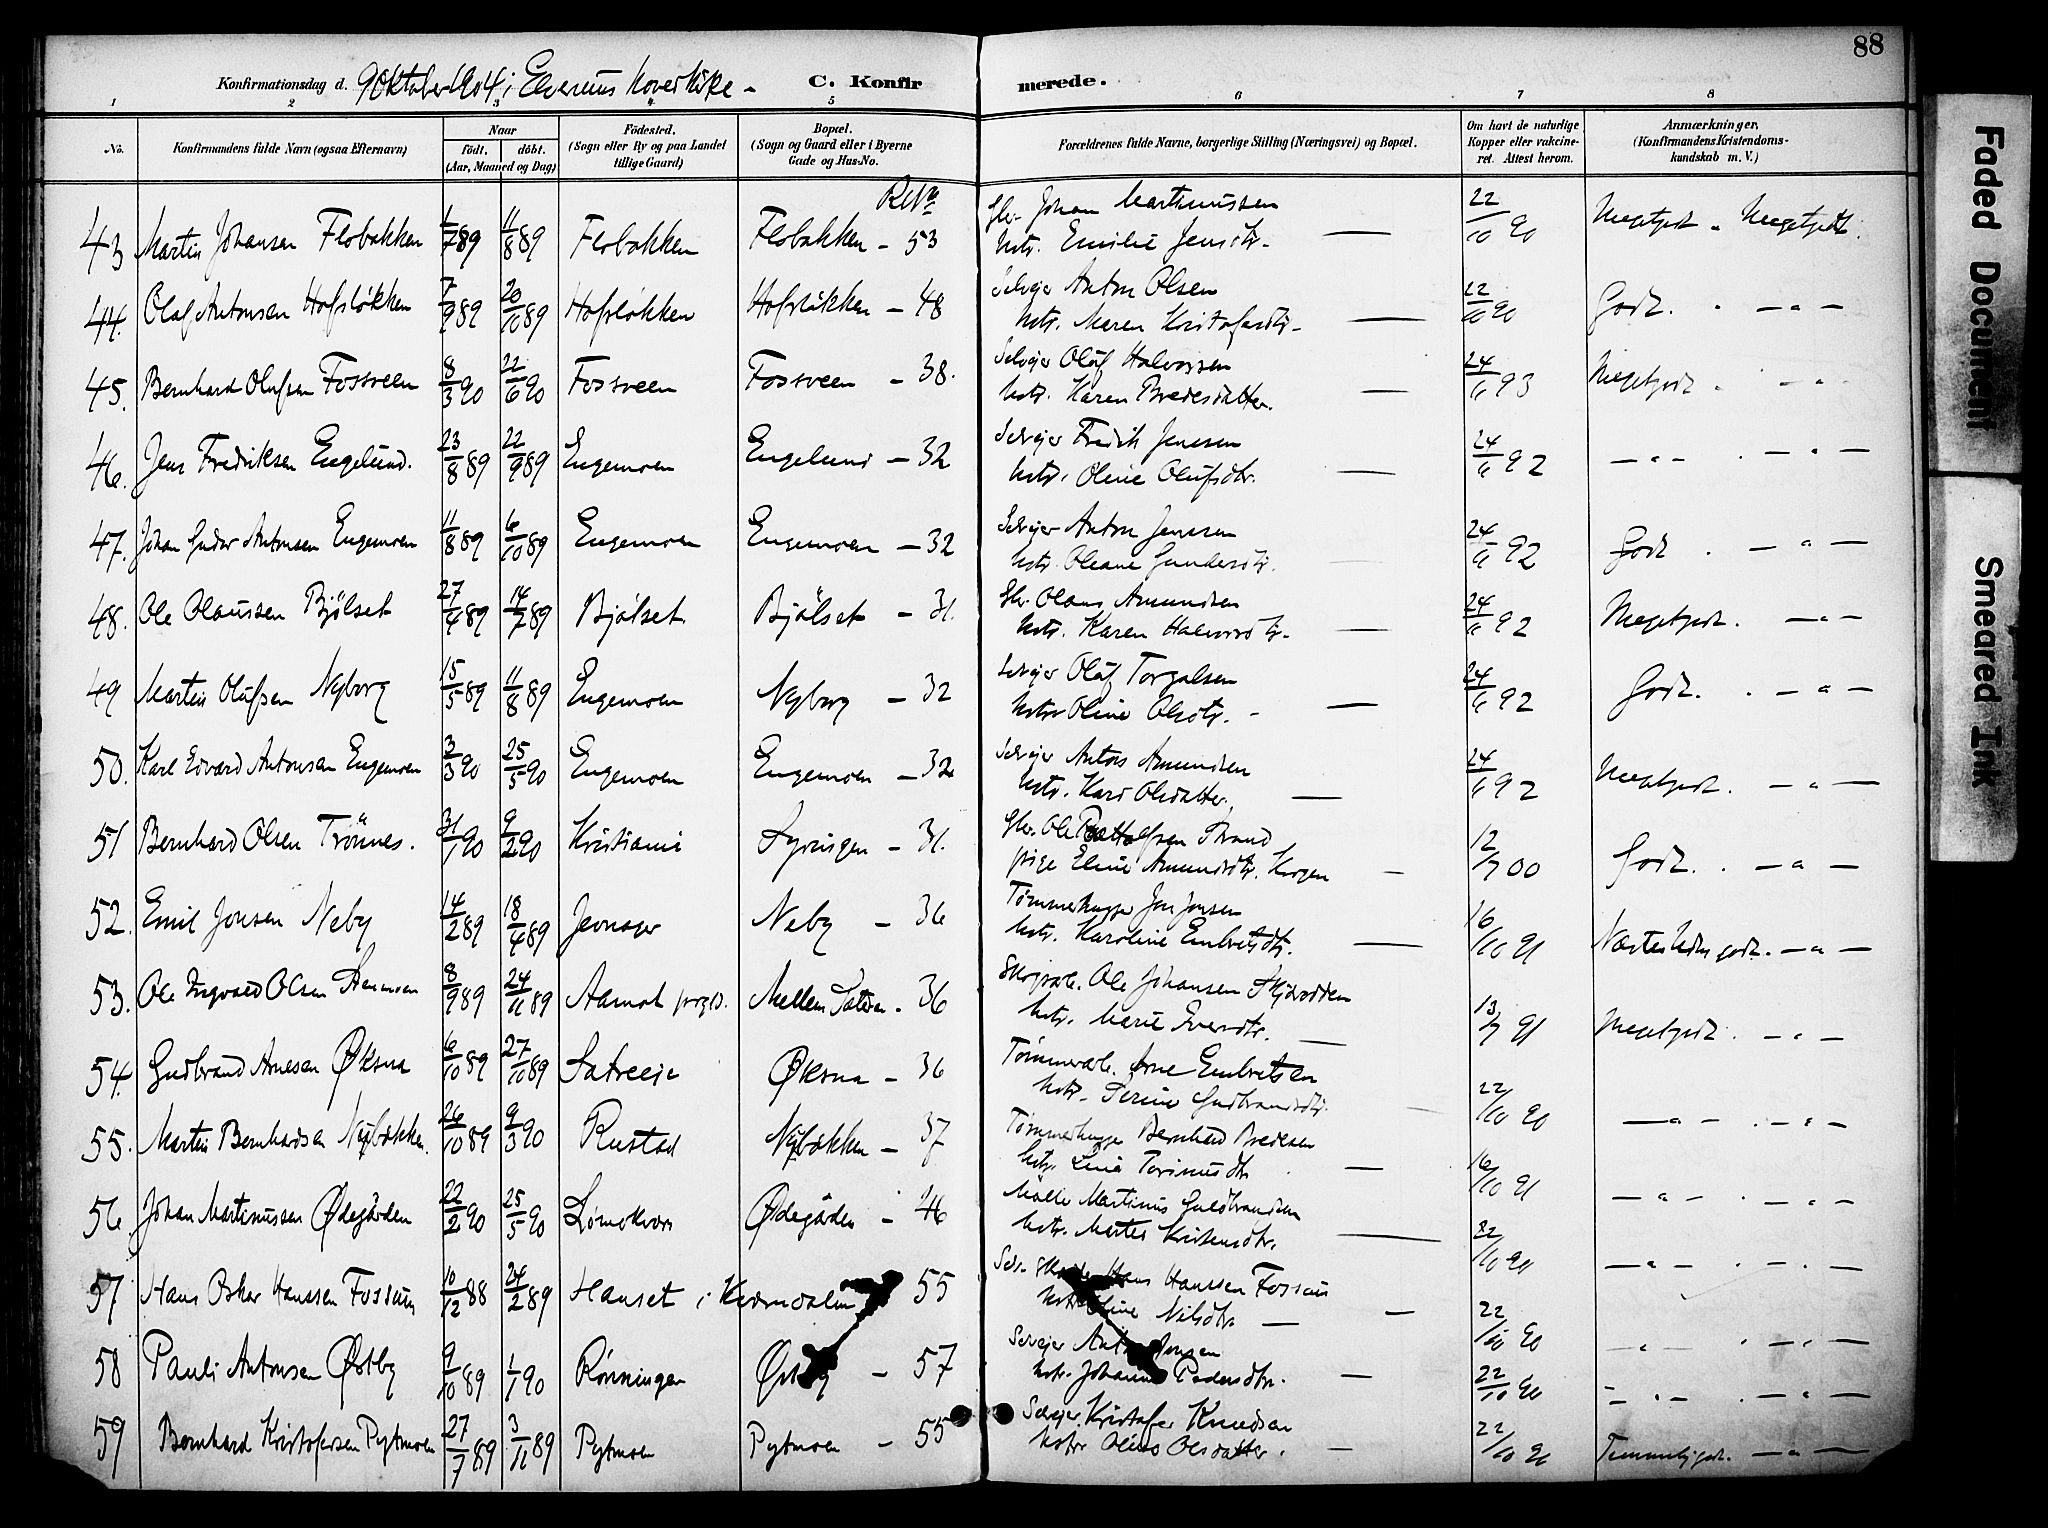 88
Konfirmationsdag d. 9 Oktober 1904 i Elverums Hovedkirke - C. Konfirmerede.
1 2 3 4 5 6 7 8
No. Konfirmandens fulde Navn (ogsaa Efternavn) Naar födt. döbt. (Aar, Maaned og Dag) Födested. (Sogn eller By og paa Landet tillige Gaard) Bopæl. (Sogn og Gaard eller i Byerne Gade og Hus-No. Forældrenes fulde Navne, borgerlige Stilling (Næringsvei) og Bopæl. Om havt de naturlige Kopper eller vakcineret. Attest herom. Anmærkninger, (Konfirmandens Kristendomskundskab m. V.)
43 Martin Johansen Flobakken 1/7 89 11/8 89 Flobakken Flobakken - 53 Johan Martinussen 22/10 90 Megetgodt - Megetgodt.
Hstr. Emilie Jensdtr. —
44. Olaf Antonsen Hofsløkken 7/9 89 20/10 89 Hofsløkken Hofsløkken - 48 Selveier Anton Olsen 22/10 90 Godt. - " -
Hstr. Maren Kristofersdtr. —
45. Bernhard Olufsen Fossveen 8/3 90 22/6 90 Fossveen Fossveen - 38. Selveier Oluf Halvorsen 24/6 93 Megetgodt. - " -
Hstr. Karen Bredesdatter. —
46. Jens Fredriksen Engelund. 23/8 89 22/9 89 Engemoen Engelund - 32 Selveier Fredrik Jenssen 24/6 92 - " - . - " -
Hstr. Oline Olufsdtr. —
47. Johan Gudar Antonsen Engemoen 11/8 89 6/10 89 Engemoen Engemoen - 32 Selveier Anton Jenssen 24/6 92 Godt . - " -
Hstr. Oleane Gundersdtr.
48. Ole Olaussen Bjölset 27/4 89 14/7 89 Bjölset Bjölset - 31. Olaus Amundsen 24/6 92 Megetgodt. - " -
Hstr. Karen Halvorsdtr. —
49 Martin Olufsen Nyborg 15/5 89 11/8 89 Engemoen Nyborg - 32 Selveier Oluf Torgalsen 24/6 92 Godt. . - " -
Hstr. Oline Olsdtr. - —
50. Karl Edvard Antonsen Engemoen 3/3 90 25/5 90 Engemoen Engemoen - 32 Selveier Anton Amundsen 24/6 92 Megetgodt. - " -
Hstr. Kari Olsdatter. —
51 Bernhard Olsen Trönnes. 31/1 90 9/2 90 Kristiania - 31. Ole Strand 12/7 00 Godt. . - " -
pige Eline Amundsdtr. —
52. Emil Jonsen Neby 14/2 89 18/4 89 Jevnager Neby - 36 Tømmerhugger Jon Jonsen 16/10 91 Næsten Udm. godt. - " -
Hstr. Karoline Embretsdtr. —
53. Ole Ingvald Olsen 8/9 89 24/11 89 Aamot prgld. Mellem Sætren - 36 Ole Johansen 13/7 91 Megetgodt. - " -
Hstr. Marie Iversdtr. —
54. Gudbrand Arnesen Øksna 6/10 89 27/10 89 Øksna - 36 Tømmerarb. Arne Embretsen 22/10 90 - " - . - " -
Hstr. Serine Gudbrandsdtr.
55. Martin Bernhardsen Nybakken. 26/10 89 9/3 90 Rustad Nybakken - 37 Tømmerhugger Bernhard Bredesen 16/10 91 - " - . - " -
Hstr. Lina —
56 Johan Martinussen Ødegården 22/2 90 25/5 90 Ødegården - 46 Martinus Guldbrandsen 22/10 90 - " - . - " -
Hstr. Marte Kristensdtr. —
57 Hans Oskar Hanssen Fossum 10/12 88 24/2 89 Hanset i - 55 Hans Hanssen Fossum 22/10 90 - " - . - " -
Hstr. Oline Nilsdtr. —
58 Pauli Antonsen Østby 9/10 89 1/1 90 Rönningen Østby - 57 Selveier Anton Jonsen 22/10 90 - " - . - " -
Hstr. Johanne Pedersdtr. —
59 Bernhard Kristofersen Pytmoen 27/7 89 3/11 89 Pytmoen Pytmoen - 55 Selveier Kristofer Knudsen 22/10 90 Temmelig godt. - " -
Hstr. Oline Olsdatter. —
Faded Document
Smeared Ink